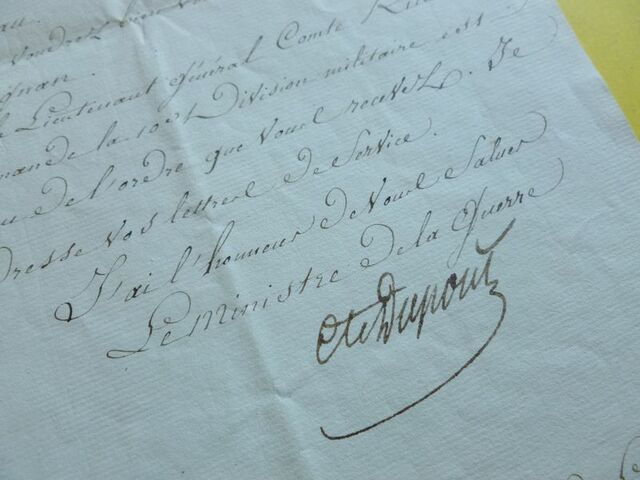 au.
Voudrez bien
gnan.
Lieutenant Général Comte
mande la 10e Division militaire est
de l'ordre que vous recevez. Je
dresse vos lettres de Service.
J'ai l'honneur de Vous Saluer
Le Ministre de la Guerre
Cte Dupont